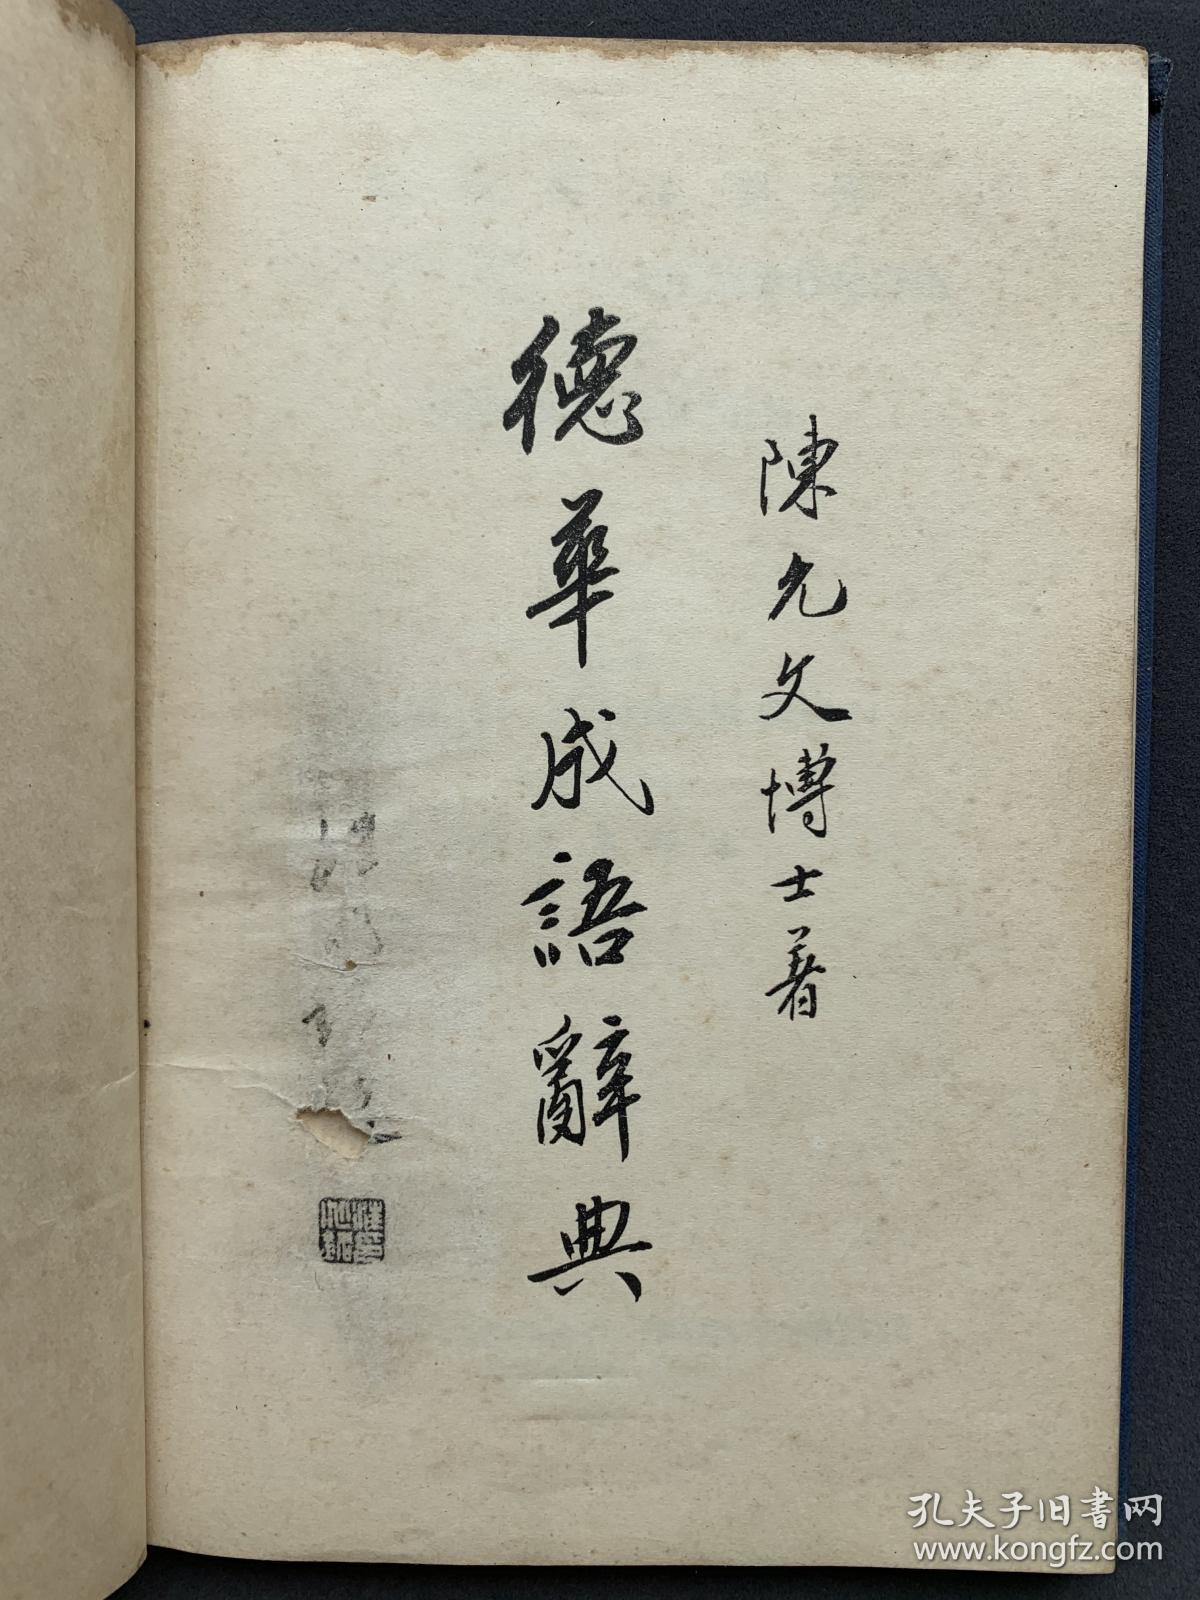 陳允文博士著
德華成語辭典
孔夫子旧書网
www.kongfz.com